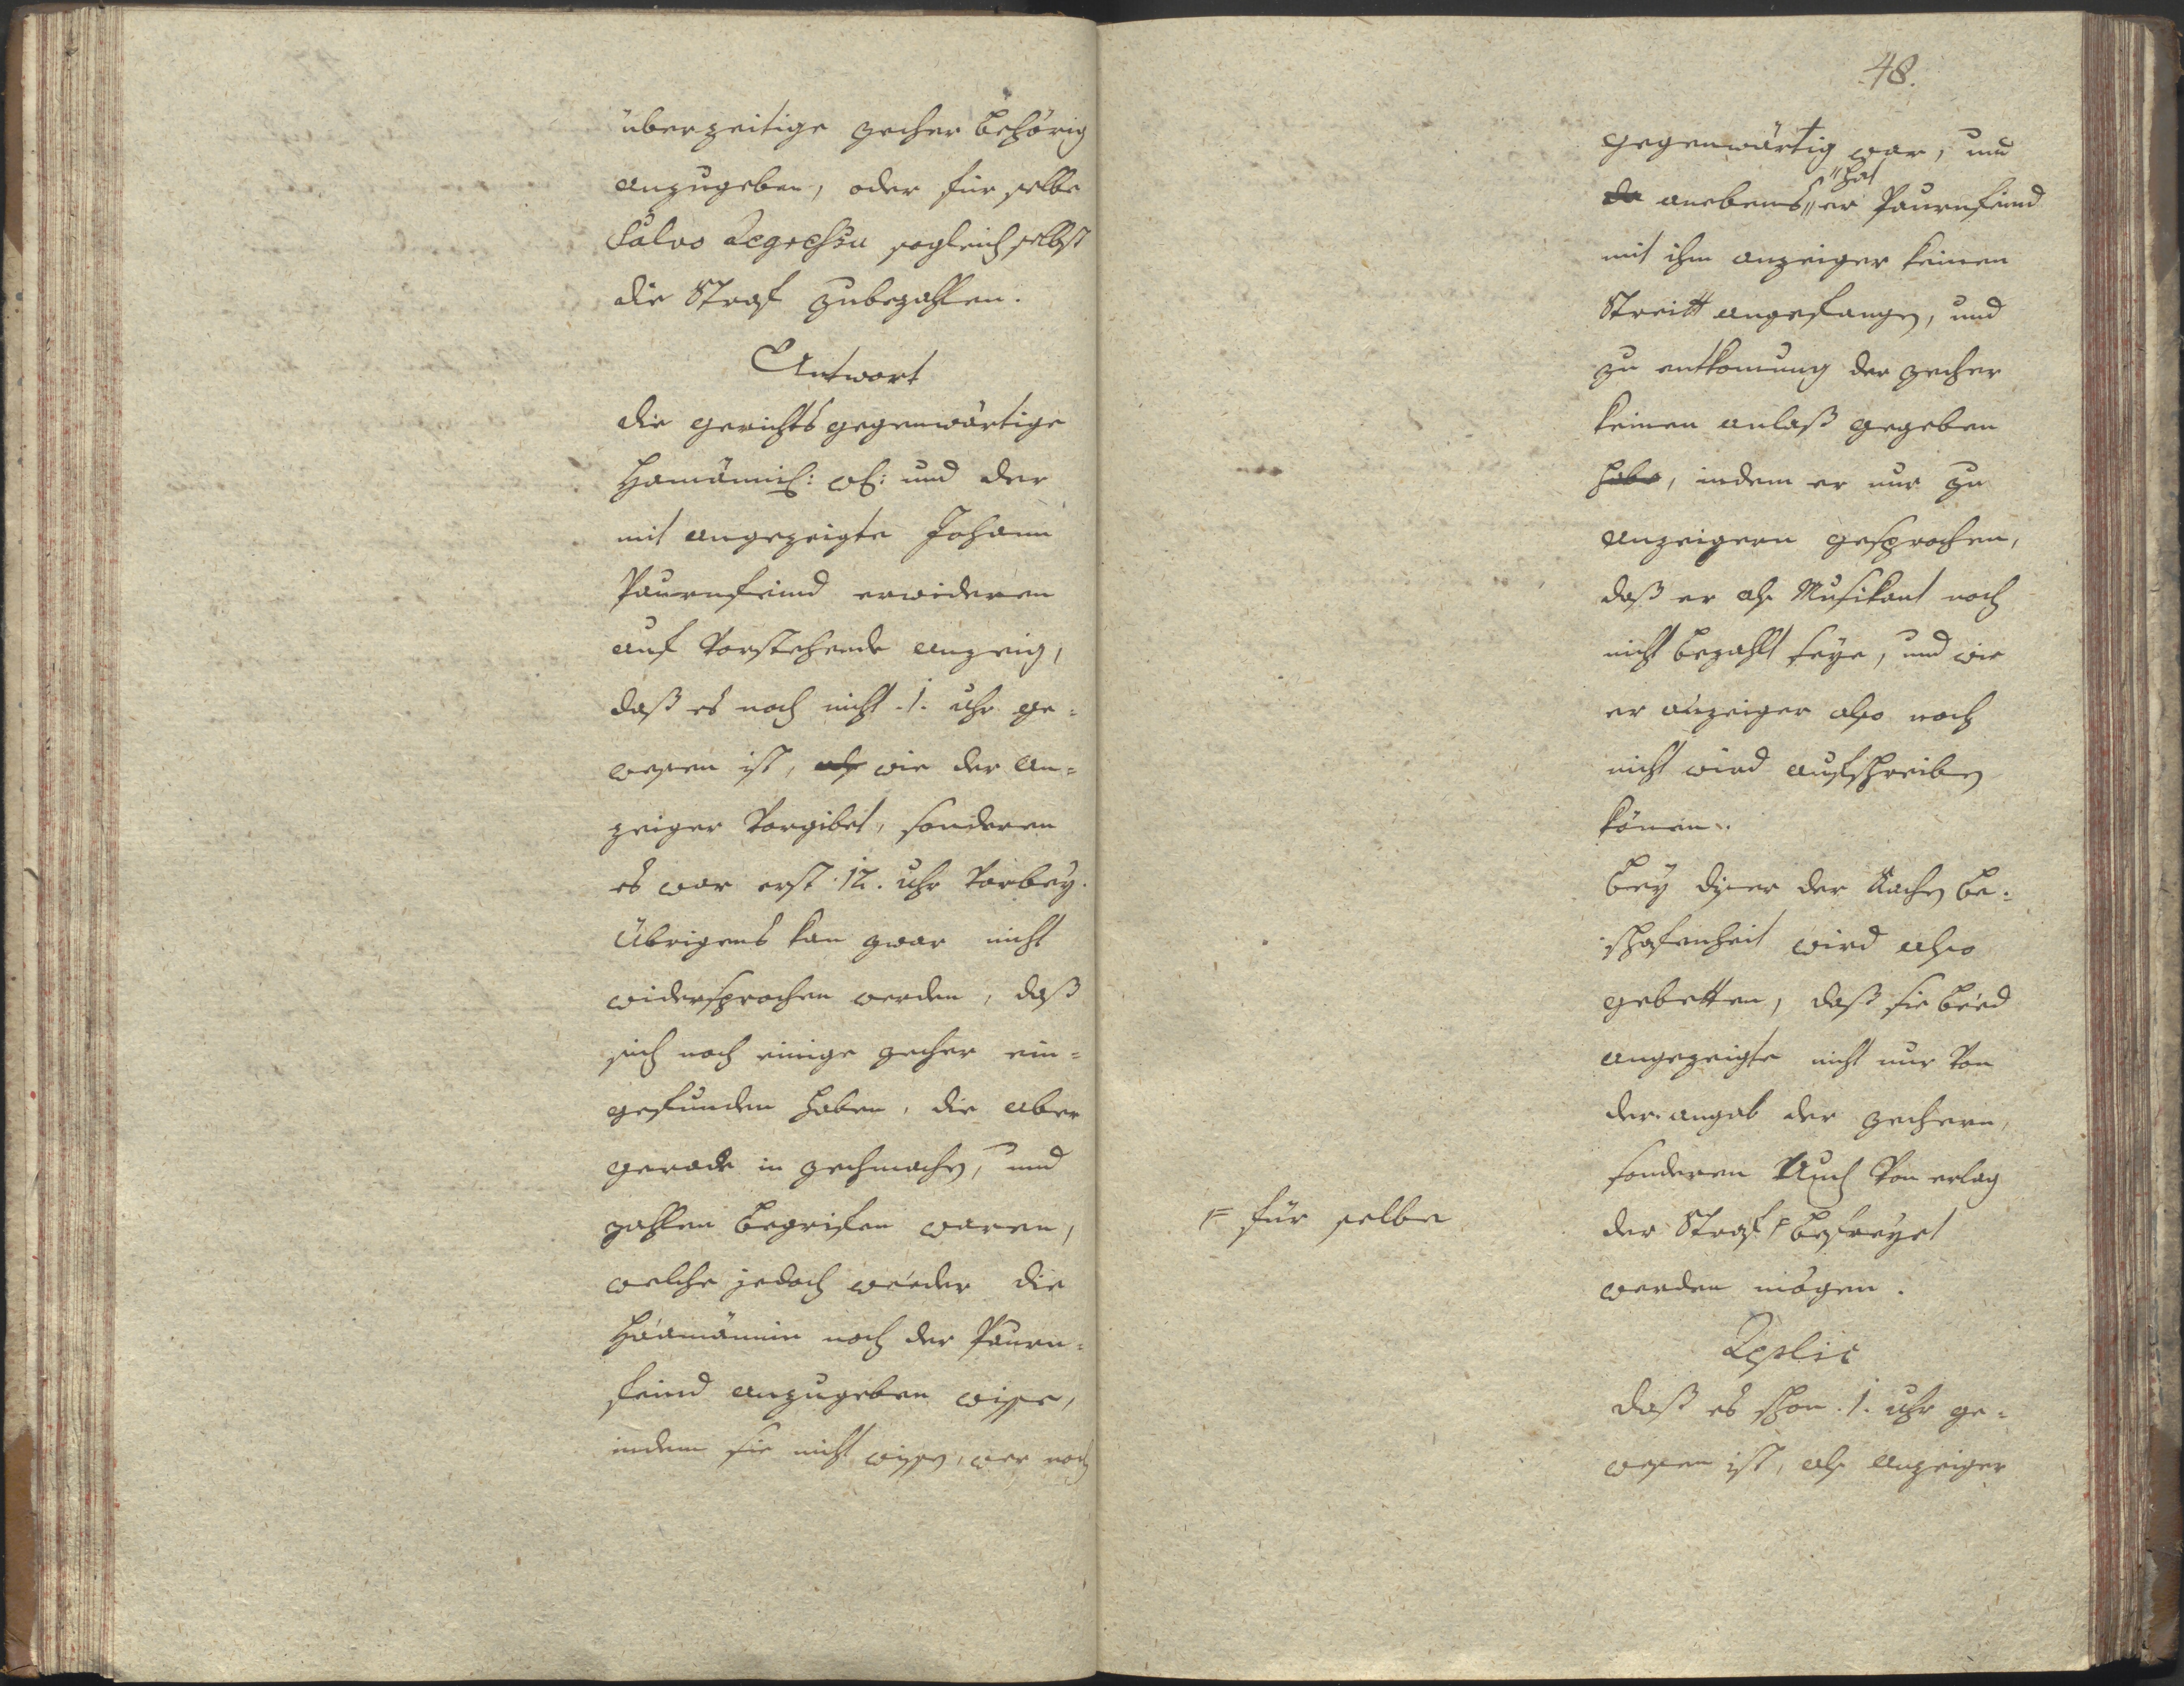 überzeitige zecher behörig
anzugeben, oder für selbe
Salvo Regressu sogleich selbst
die Straf zubezahlen.
Antwort
die gerichts gegenwärtige
und der
mit angezeigte Johann
Paurnfeind erwideren
auf vorstehende anzeig,
daß es noch nicht .1. uhr ge=
wesen ist, als wie der an=
zeiger vorgibet, sonderen
es war erst .12. uhr vorbey.
Übrigens kan zwar nicht
widersprochen werden, daß
sich noch einige zecher ein=
gefunden haben, die aber
gerade in zechmachen, und
zahlen begrifen waren,
welche jedoch weeder die
Haamännin noch der Paurn=
feind anzugeben wisse,
indem sie nicht wissen, wer noch
48.
gegenwärtig war, und
da anebens "hat
er Paurnfeind
mit ihm anzeiger keinen
Streitt angefangen, und
zu entkomung der zecher
keinen anlaß gegeben
habe, indem er nur zu
anzeigern gesprochen,
daß er als Musikant noch
nicht bezahlt seye, und wie
er anzeiger also noch
nicht wird aufschreiben
könen.
bey diser der Sachen be=
schafenheit wird also
gebetten, daß sie beed
angezeigte nicht nur von
der angab der zechern,
sonderen auch von erlag
der Straf F befreyet
F für selbe
werden mögen.
Replic
daß es schon .1. uhr ge=
wesen ist, als anzeiger